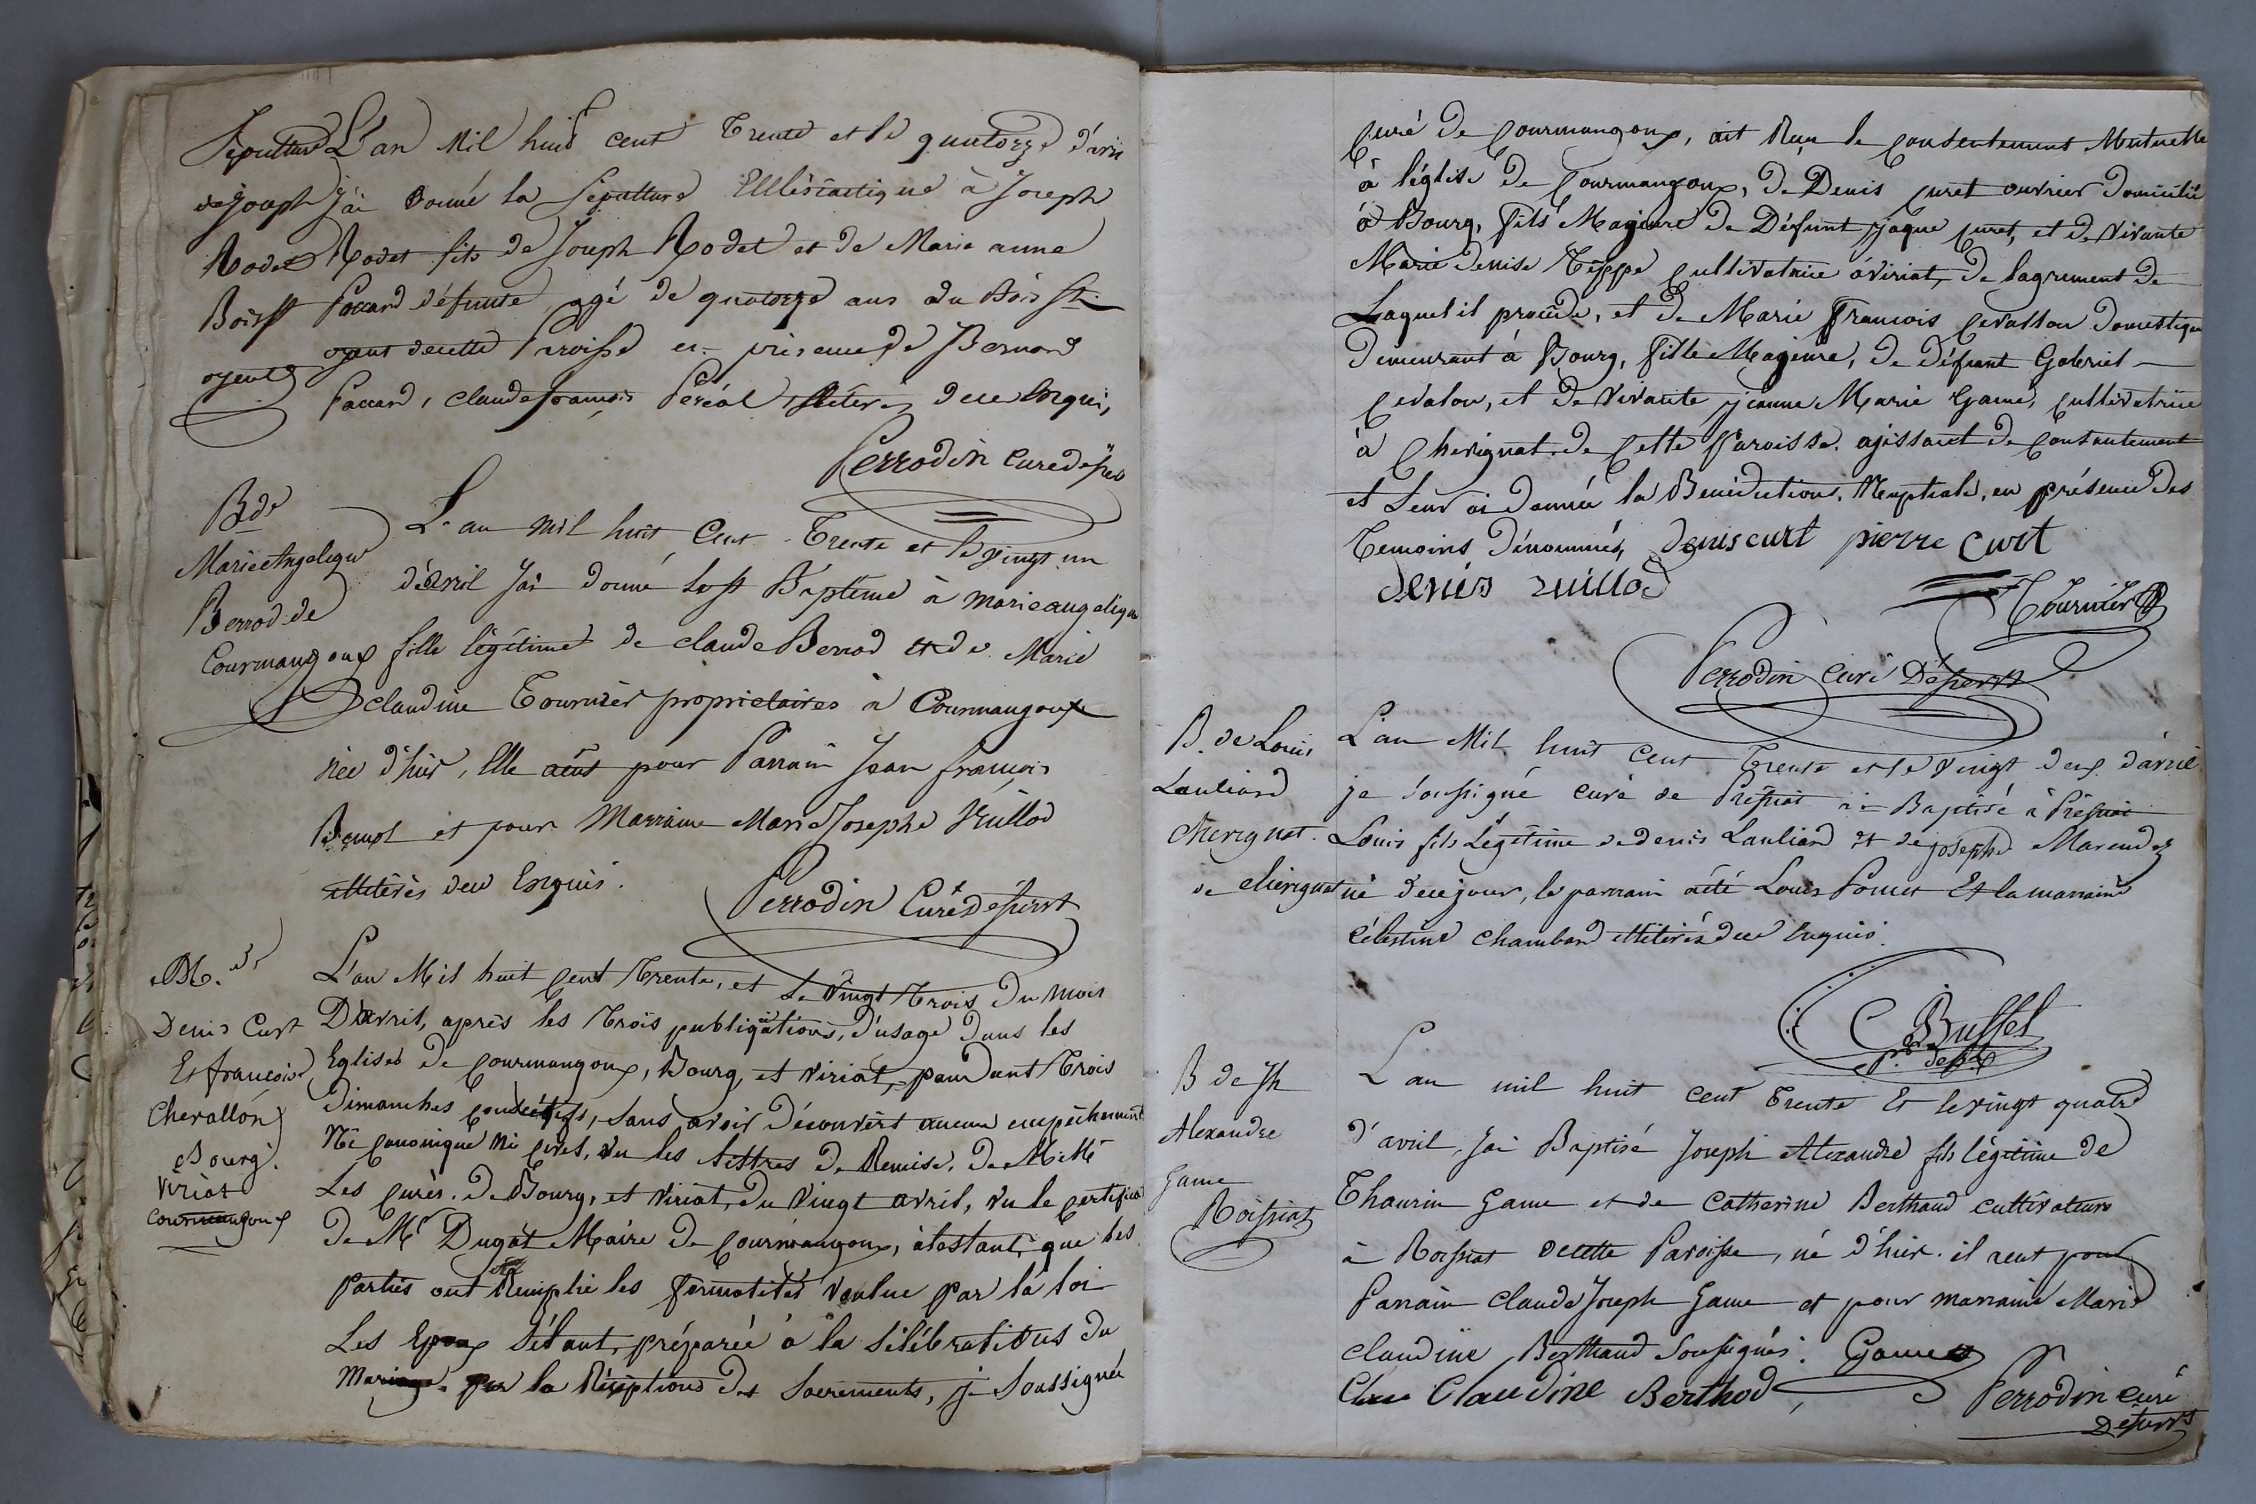 Sépulture
de Joseph
Rodet
Bois St
oyent
L'an Mil huit cent Trente et le quatorze d'avri
J'ai donné la Sépulture Elllésiastique à Joseph
Rodet fils de Joseph Rodet et de Marie anne
Pocard défunte, agé de quatorze ans du Bois St
oyent decette Paroisse en présence de Bernard
Paccard, Claude françois Peréal illitérés dece enquis,
Perrodin curé desser
B de
Marie Angelique
Berrod de
Courmangoux
L'an mil huit Cent Trente et le vingt un
d'avril J'ai donné le St Baptême à marie angelique
fille légitime de claude Berrod et de Marie
claudine Tournier propriétaires à Courmangoux
née d'hier, Elle aëut pour Parrain Jean françois
Benoit et pour Marraine Marie Josephe Vuillod
illitérés dece Enquis.
Perrodin Curé Désservt
M. de
Denis Curt
Et françoise
Chevallon
Bourg.
Viriat
Courmangoux
L'au Mil huit Cent Trente, et Le Vingt Trois Du mois
D'avril, après les Trois publications, d'usage Dans les
Eglises de Courmangoux, Bourg, et Viriat, pandant Trois
Dimanches consécutifs, sans avoir Découvert aucun empêchement
Ni Canonique Ni Civil, vu les Lettres De Remise, De M. M.
Les Curés. De Bourg, et Viriat, Du Vingt avril, Vu le Certificat
De Mr Dugat Maire De Courmangoux, atestant, que les
Parties ont Remplie les formalités Voulue Par la loi
Les Epoux S'étant, préparée à la Sélébrations du
Mariage par la Réception des Sacrements, je Soussignée
Curé de Courmangoux, ait Reçu le Consentement Mutuelle
à l'église De Courmangoux, De Denis Curet ouvrier Domicilié
à Bourg, fils Majeure De Défunt Jaque Curet, et De Vivante
Marie Denise Teppe Cultivatrice à Viriat, De Lagrement De
Laquel il procède, et De Marie François Cevallon Domestique
Demeurant à Bourg, fille Majeure, De Défunt Gabriel
Cevalon, et De Vivante Jeanne Marie Game, Cultivatrice
à Cherignat De Cette Paroisse. agissant De Consantement
et Leur ai Donnée la Bénédictions Nuptiale, en présence Des
Temoins Dénommés, Denis curt pierre Curt
denis vuillod
Tournier
Perrodin Curé Désservt
B. de Louis
Lauliard
Cherignat.
de cherignat
L'an Mil huit Cent Trente et le Vingt deux d'avril
je soussigné curé de Préssiat ai Baptisé à Préssiat
Louis fils Légitime de denis Lauliard et de josephe Marendez
né dece jour, le parrain aété Louis Pomet Et la marraine
célestine Chambard illitérés dece enquis.
C Buffet
pr. dess
B de Jh
Alexandre
Game
Roissiat
L'an mil huit cent Trente Et le vingt quatre
d'avril, J'ai Baptisé Joseph Alexandre fils légitime de
Thaurin Game et de Catherine Berthaud cultivateurs
à Roissiat decette Paroisse, né d'hier. il aeut pour
Parrain Claude Joseph Game et pour marraine Marie
claudine Berthaud Soussignés. Game
Claudine Berthod
Perrodin curé
Desservt